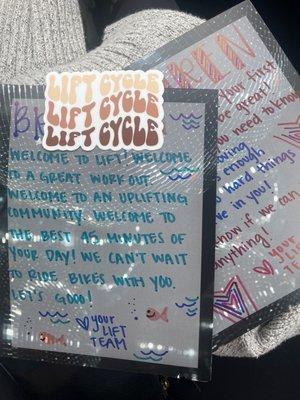 LIFT CYCLE
LIFT CYCLE
LIFT CYCLE
WELCOME TO LIFT! WELCOME
TO A GREAT WORKOUT.
WELCOME TO AN UPLIFTING
COMMUNITY. WELCOME TO
THE BEST 45 MINUTES OF
YOUR DAY! WE CAN'T WAIT
TO RIDE BIKES WITH YOU.
LET'S GOOO!
your
LIFT
TEAM
your first
be great!
you need to know
moving
enough
hard things
in you!
know if we can
anything!
your
LIFT
TEAM